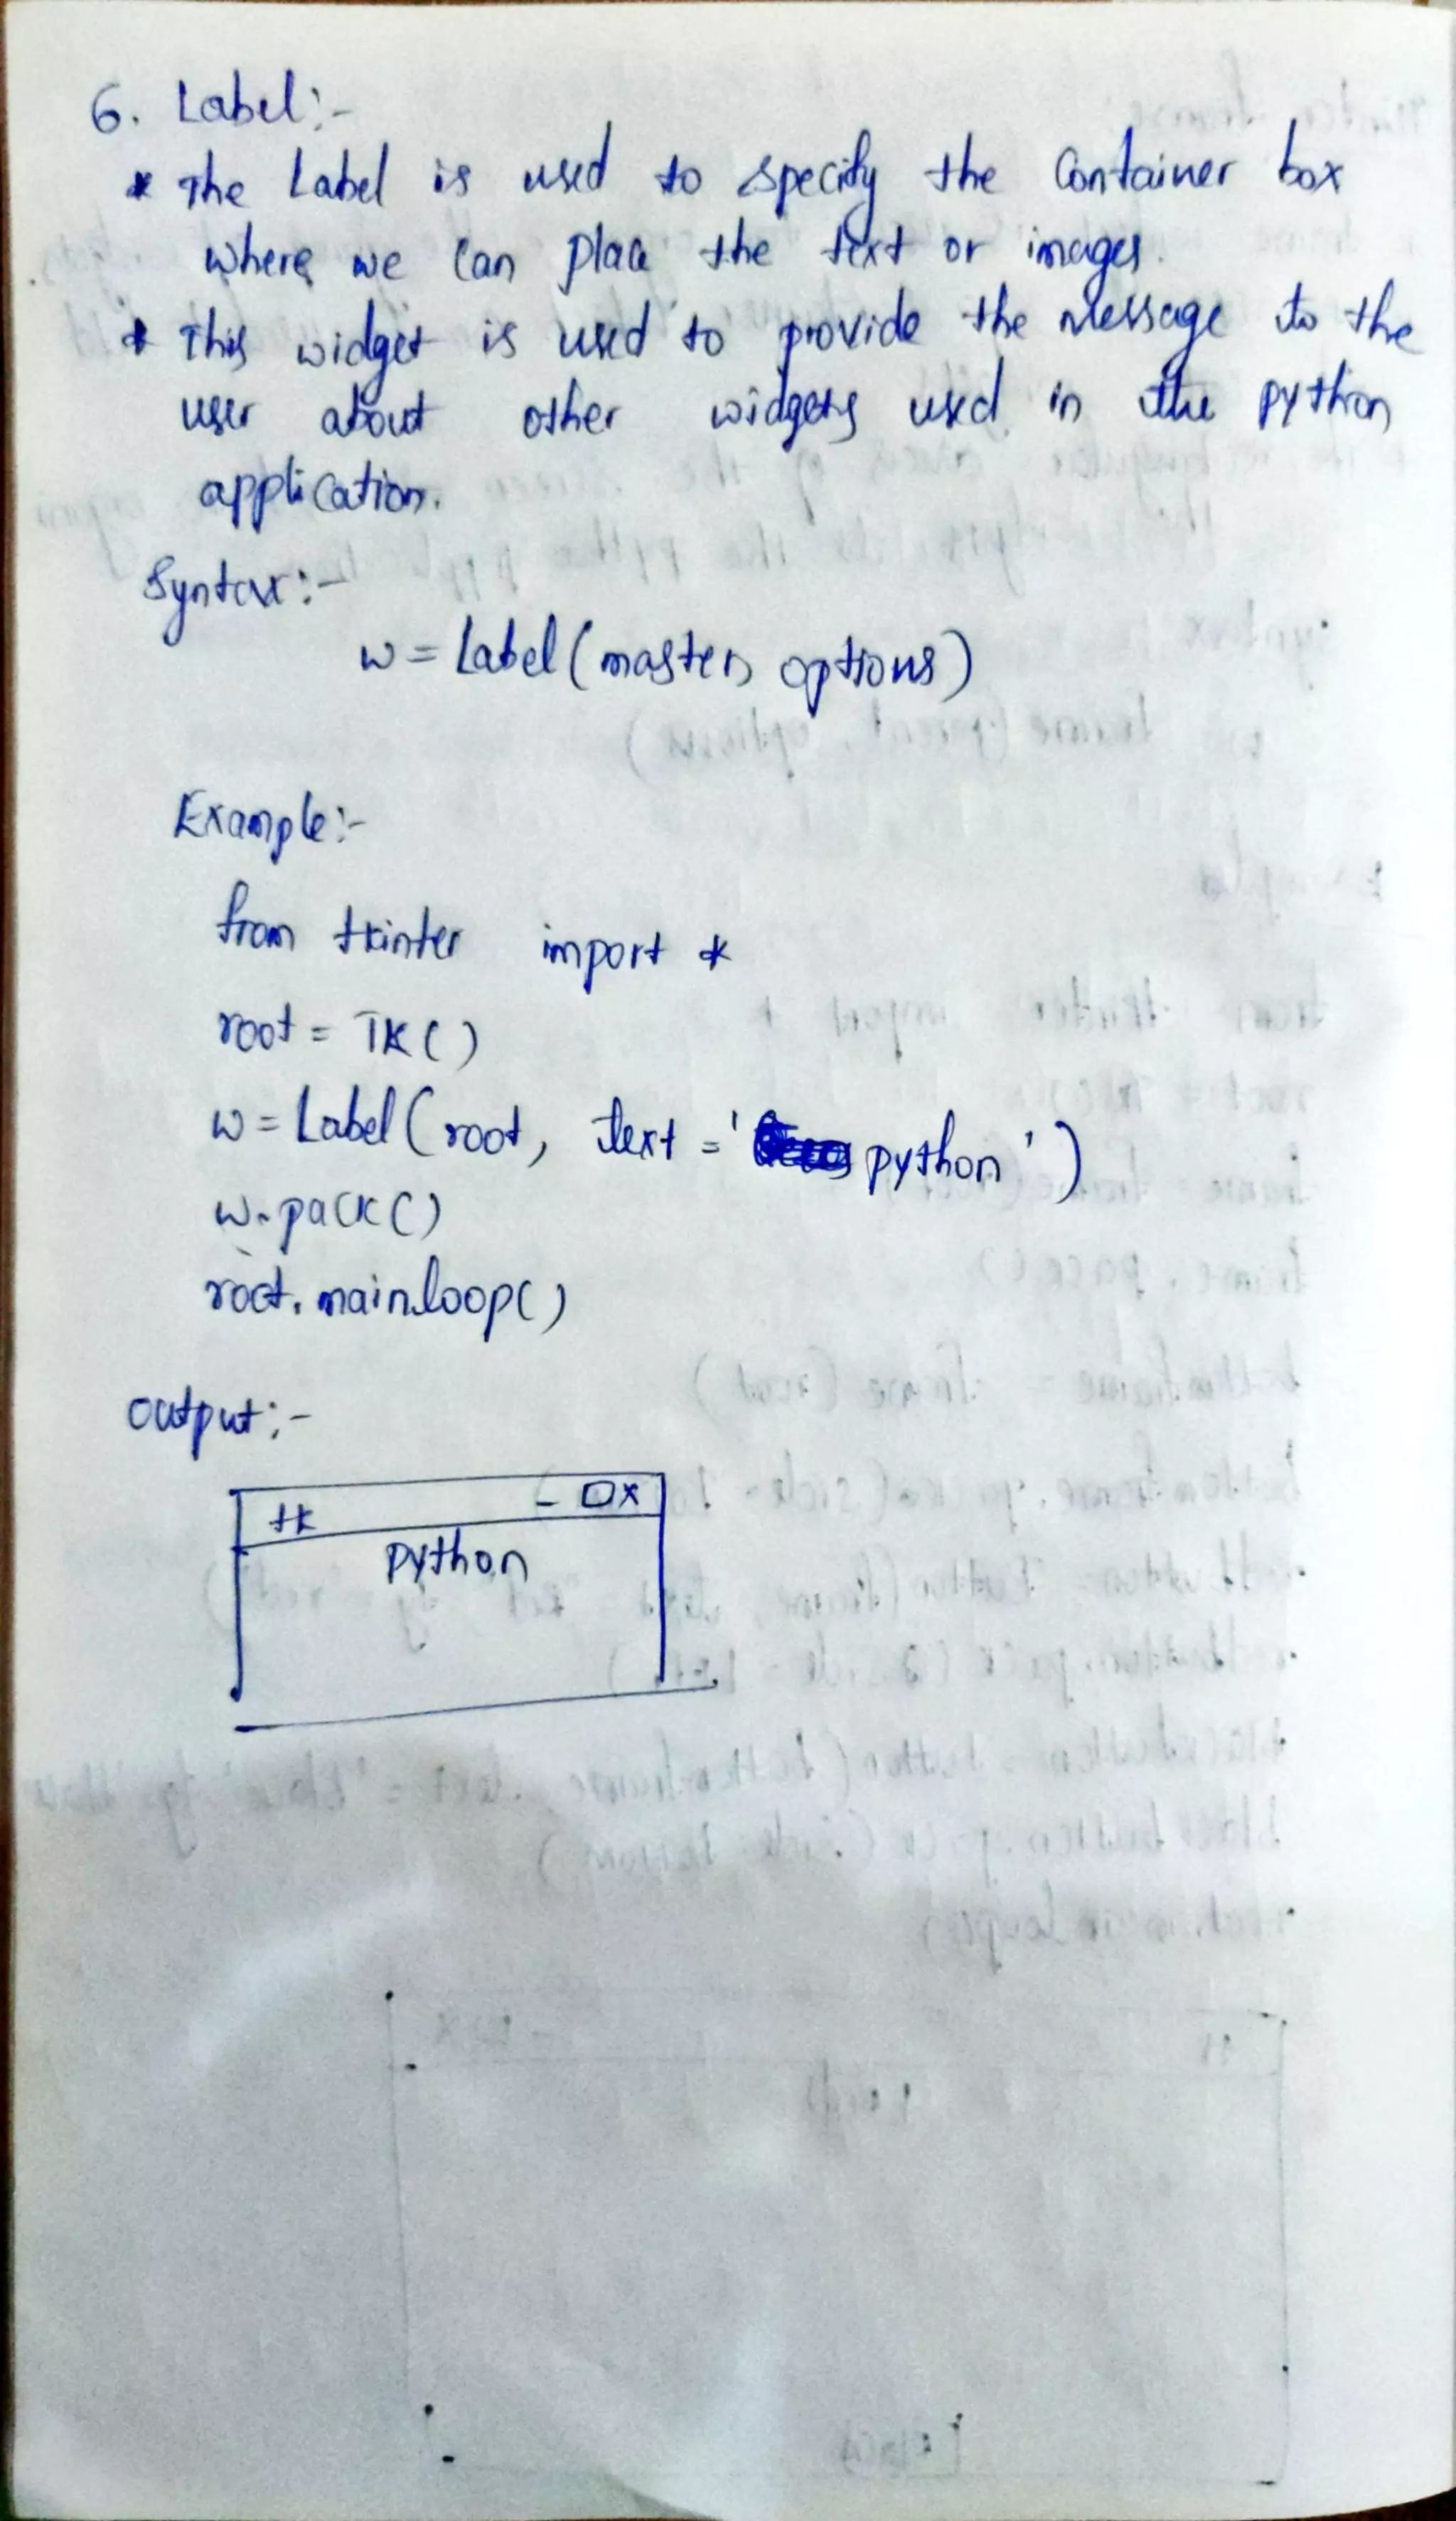 6. Label:-
* The Label is used to specify the Container box
where we can place the text or images.
* This widget is used to provide the message to the
user about other widgets used in the python
application.
Syntax:-
w = Label (master, options)
Example:-
from tkinter import *
root = TK()
w = Label (root, text = ' python ')
w.pack()
root.mainloop()
output:-
tk - □ x
python